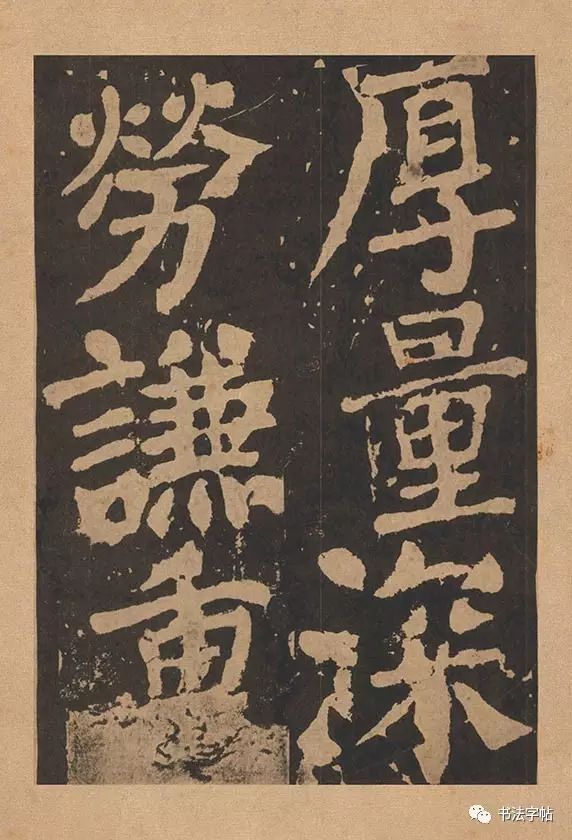 厚量深
勞謙重
书法字帖